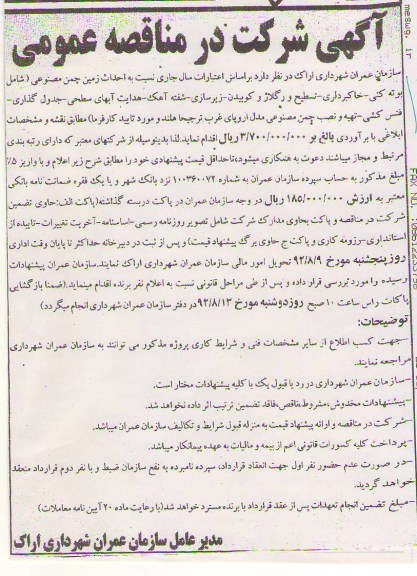 آگهی شرکت در مناقصه عمومی
سازمان عمران شهرداری اراک در نظر دارد براساس اعتبارات سال جاری نسبت به احداث زمین چمن مصنوعی (شامل
بوته کنی-خاکبرداری-تسطیح و رگلاژ و کوبیدن-زیرسازی-شفته آهک-هدایت آبهای سطحی-جدول گذاری-
فنس کشی-تهیه و نصب چمن مصنوعی مدل اروپای غرب ترجیحا هلند و مورد تایید کارفرما) مطابق نقشه و مشخصات
ابلاغی با برآوردی بالغ بر ۳/۷۰۰/۰۰۰/۰۰۰ ریال اقدام نماید.لذا بدینوسیله از شرکتهای معتبر که دارای رتبه بندی
مرتبط و مجاز میباشند دعوت به همکاری میشود تا حداقل قیمت پیشنهادی خود را مطابق شرح زیر اعلام و با واریز ۵٪
مبلغ مذکور به حساب سپرده سازمان عمران به شماره ۱۰۰۳۶۰۰۷۲ نزد بانک شهر و یا یک فقره ضمانت نامه بانکی
معتبر به ارزش ۱۸۵/۰۰۰/۰۰۰ ریال در وجه سازمان عمران در پاکت دربست گذاشته(پاکت الف:حاوی تضمین
شرکت در مناقصه و پاکت ب حاوی مدارک شرکت شامل تصویر روزنامه رسمی-اساسنامه-آخریت تغییرات-تاییده از
استانداری-رزومه کاری و پاکت ج حاوی برگ پیشنهاد قیمت) و پس از ثبت در دبیرخانه حداکثر تا پایان وقت اداری
روز پنجشنبه مورخ ۹۲/۸/۹ تحویل امور مالی سازمان عمران شهرداری اراک نمایند.سازمان عمران پیشنهادات
رسیده را مورد بررسی قرار داده و پس از طی مراحل قانونی نسبت به اعلام نفر برنده اقدام مینماید.(ضمنا بازگشایی
پاکات راس ساعت ۱۰ صبح روز دوشنبه مورخ ۹۲/۸/۱۳ در دفتر سازمان عمران شهرداری انجام میگردد)
توضیحات:
-جهت کسب اطلاع از سایر مشخصات فنی و شرایط کاری پروژه مذکور می توانند به سازمان عمران شهرداری
مراجعه نمایند.
-سازمان عمران شهرداری در رد یا قبول یک یا کلیه پیشنهادات مختار است.
-پیشنهادات مخدوش،مشروط،ناقص،فاقد تضمین ترتیب اثر داده نخواهد شد.
-شرکت در مناقصه و ارائه پیشنهاد قیمت به منزله قبول شرایط و تکالیف سازمان عمران میباشد.
-پرداخت کلیه کسورات قانونی اعم از بیمه و مالیات به عهده پیمانکار میباشد.
-در صورت عدم حضور نفر اول جهت انعقاد قرارداد، سپرده نامبرده به نفع سازمان ضبط و با نفر دوم قرارداد منعقد
خواهد گردید.
-مبلغ تضمین انجام تعهدات پس از عقد قرارداد با برنده مسترد خواهد شد(با رعایت ماده ۲۰ آیین نامه معاملات)
مدیر عامل سازمان عمران شهرداری اراک